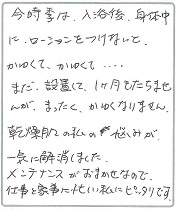 今時季は、入浴後、身体中
に、ローションをつけないと、
かゆくて、かゆくて・・・・
まだ、設置して、1ヶ月もたちませ
んが、まったく、かゆくなりません。
乾燥肌の私の悩みが、
一気に解消しました。
メンテナンスがおまかせなので、
仕事と家事に忙しい私にピッタリです。